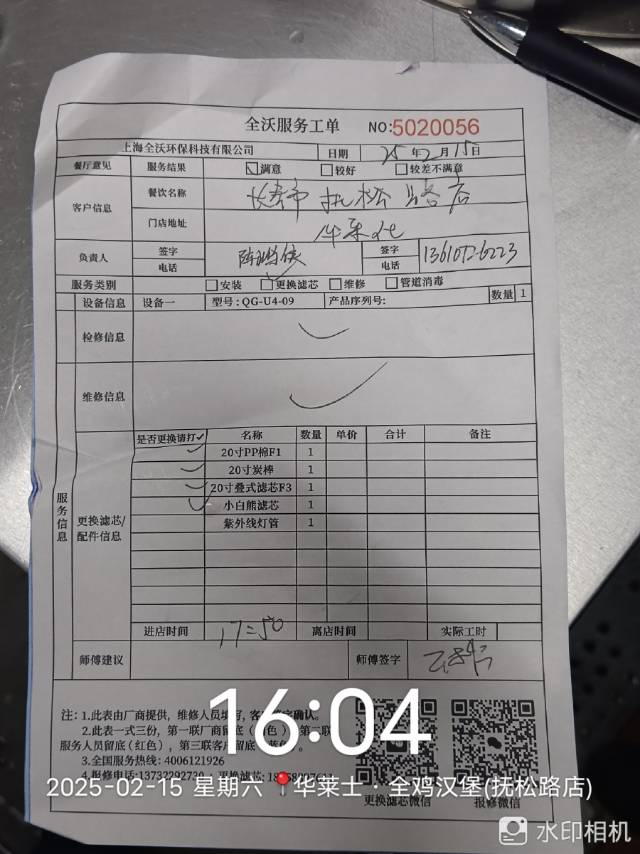 全沃服务工单 NO:5020056
上海全沃环保科技有限公司 日期 25年2月15日
餐厅意见 服务结果 满意 较好 较差不满意
客户信息 餐饮名称 路店
门店地址 华莱仕
负责人 签字 签字
电话 电话
服务类别 安装 更换滤芯 维修 管道消毒
设备信息 设备一 型号:QG-U4-09 产品序列号: 数量 1
检修信息
维修信息
服务信息
更换滤芯/配件信息
是否更换请打✓ 名称 数量 单价 合计 备注
20寸PP棉F1 1
20寸炭棒 1
20寸叠式滤芯F3 1
小白熊滤芯 1
紫外线灯管 1
进店时间 17:50 离店时间 实际工时
师傅建议 师傅签字
注:1.此表由厂商提供,维修人员填写,客 确认。
2.此表一式三份,第一联厂商留底( 色) 第二联
服务人员留底(红色),第三联客 留底
3.全国服务热线:4006121926
4.报修电话:13732292730 更换滤芯:
更换滤芯微信 报修微信
16:04
2025-02-15 星期六 华莱士·全鸡汉堡(抚松路店)
水印相机